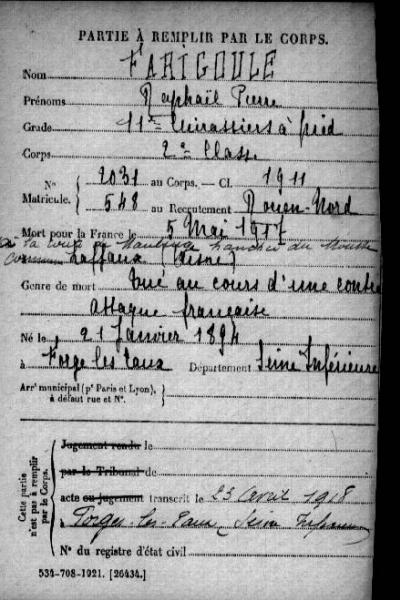 PARTIE À REMPLIR PAR LE CORPS.
Nom FARIGOULE
Prénoms Raphaël Pierre
Grade 11me Cuirassiers à pied
Corps 2me Classe
No Matricule. 2031 au Corps. — Cl. 1911
548 au Recrutement Rouen-Nord
Mort pour la France le 5 Mai 1917
à la route de Maubeuge tranchée du
commune Laffaux (Aisne)
Genre de mort Tué au cours d'une contre
attaque française
Né le 21 Janvier 1894
à Forge les Eaux Département Seine Inférieure
Arrt municipal (pr Paris et Lyon), à défaut rue et No.
Cette partie n'est pas à remplir par le Corps.
Jugement rendu le
par le Tribunal de
acte ou jugement transcrit le 23 avril 1918
à Forges-les-Eaux, Seine Inférieure
No du registre d'état civil
534-708-1921. [26434.]